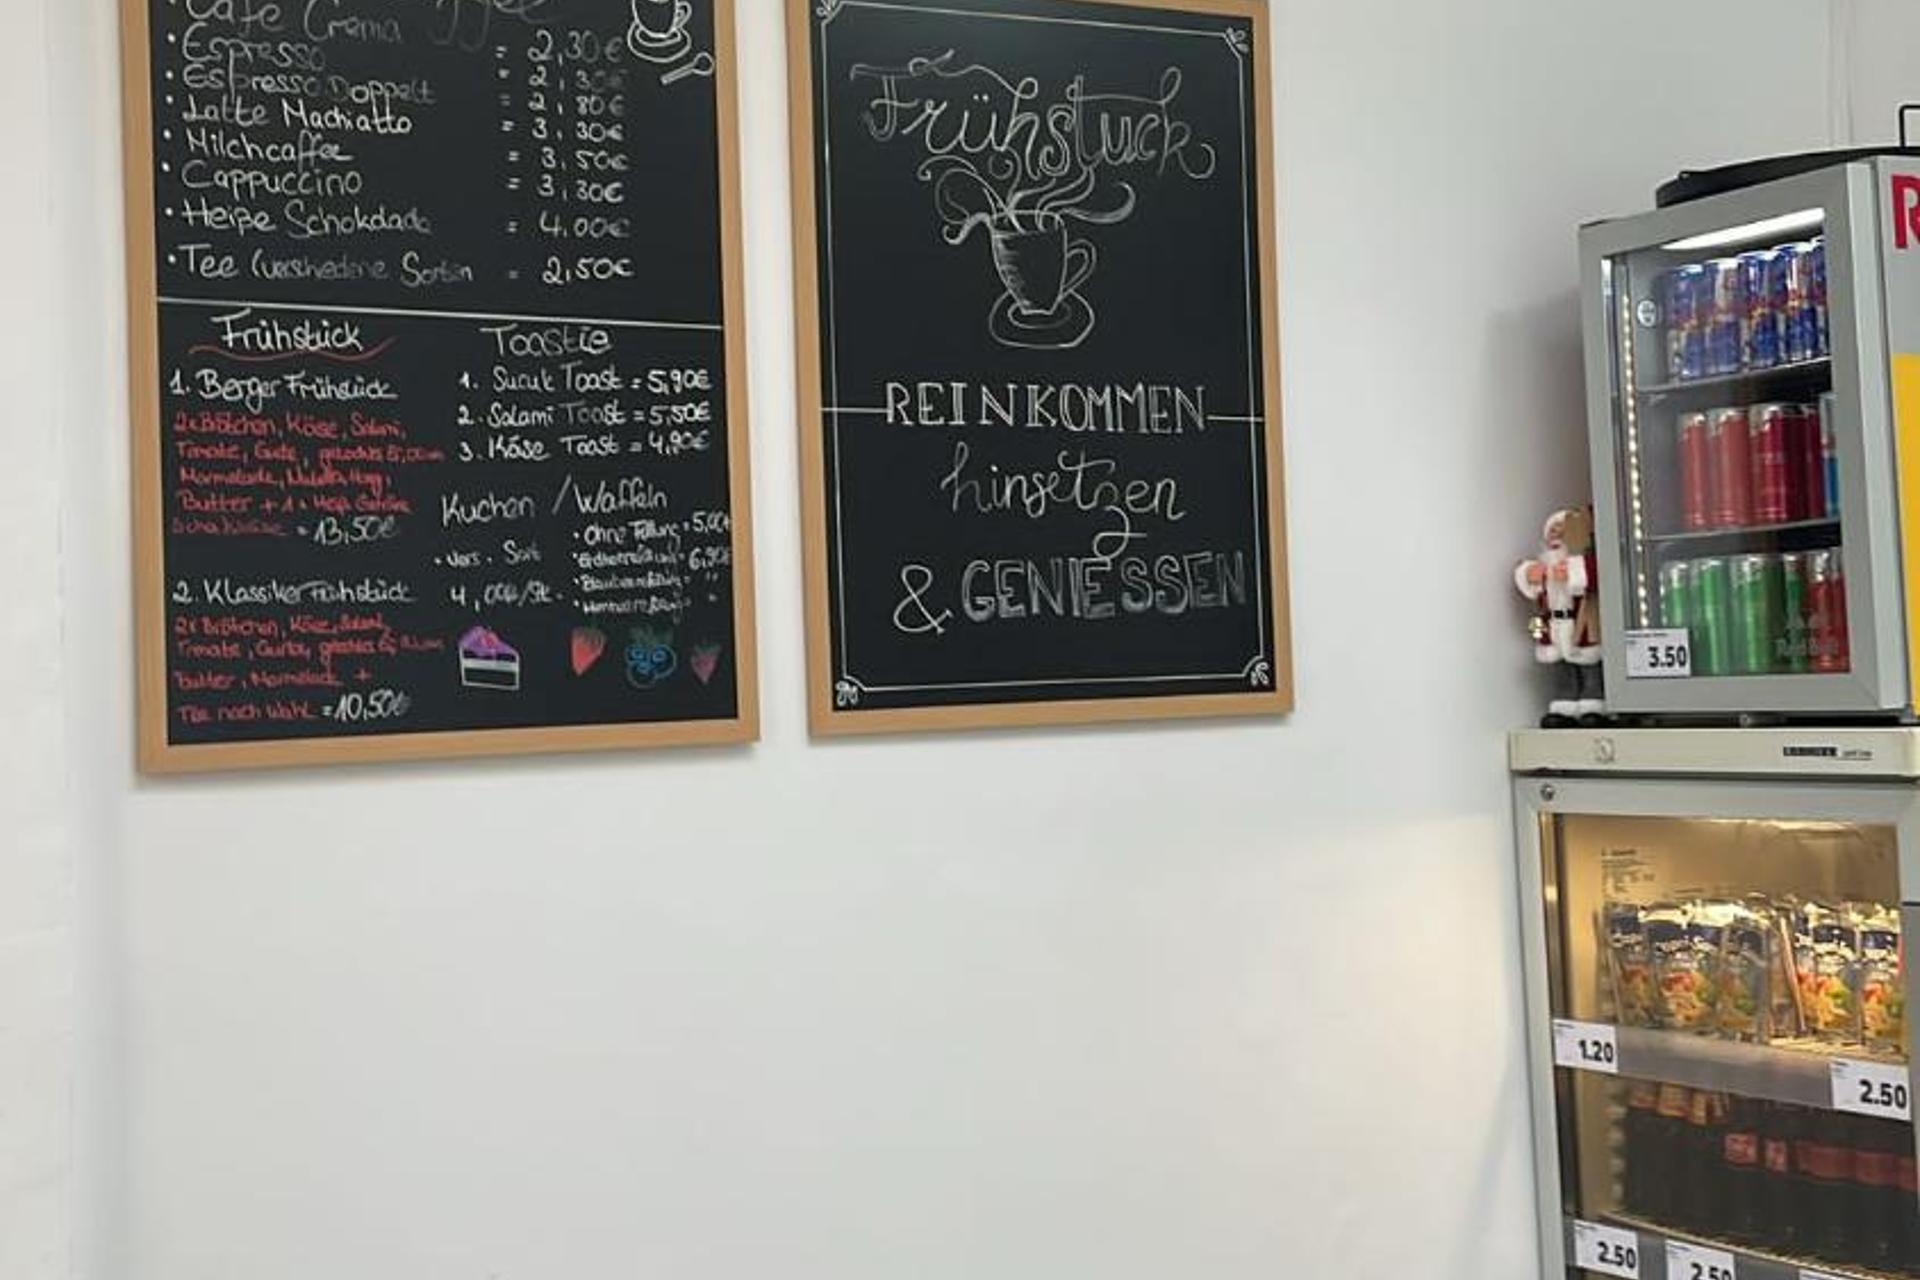 Cafe Crema = 2,30€
Espresso = 2,30€
Espresso Doppelt = 2,80€
Latte Machiatto = 3,30€
Milchcaffee = 3,50€
Cappuccino = 3,30€
Heiße Schokolade = 4,00€
Tee (verschiedene Sorten = 2,50€
Frühstück
1. Berger Frühstück
2x Brötchen, Käse, Salami,
Tomate,
Marmelade, Nutella,
Butter + 1x
= 13,50€
2. Klassiker Frühstück
2x Brötchen, Käse, Salami,
Tomate, Gurke,
Butter, Marmelade +
Tee nach Wahl = 10,50€
Toastie
1. Sucuk Toast = 5,90€
2. Salami Toast = 5,50€
3. Käse Toast = 4,90€
Kuchen / Waffeln
• vers. Sort
4,00€/St.
• Ohne Füllung = 5,00€
6,90€
Frühstück
REINKOMMEN
hinsetzen
& GENIESSEN
R
3.50
LIEBHERR
1.20
2.50
2.50
2.50